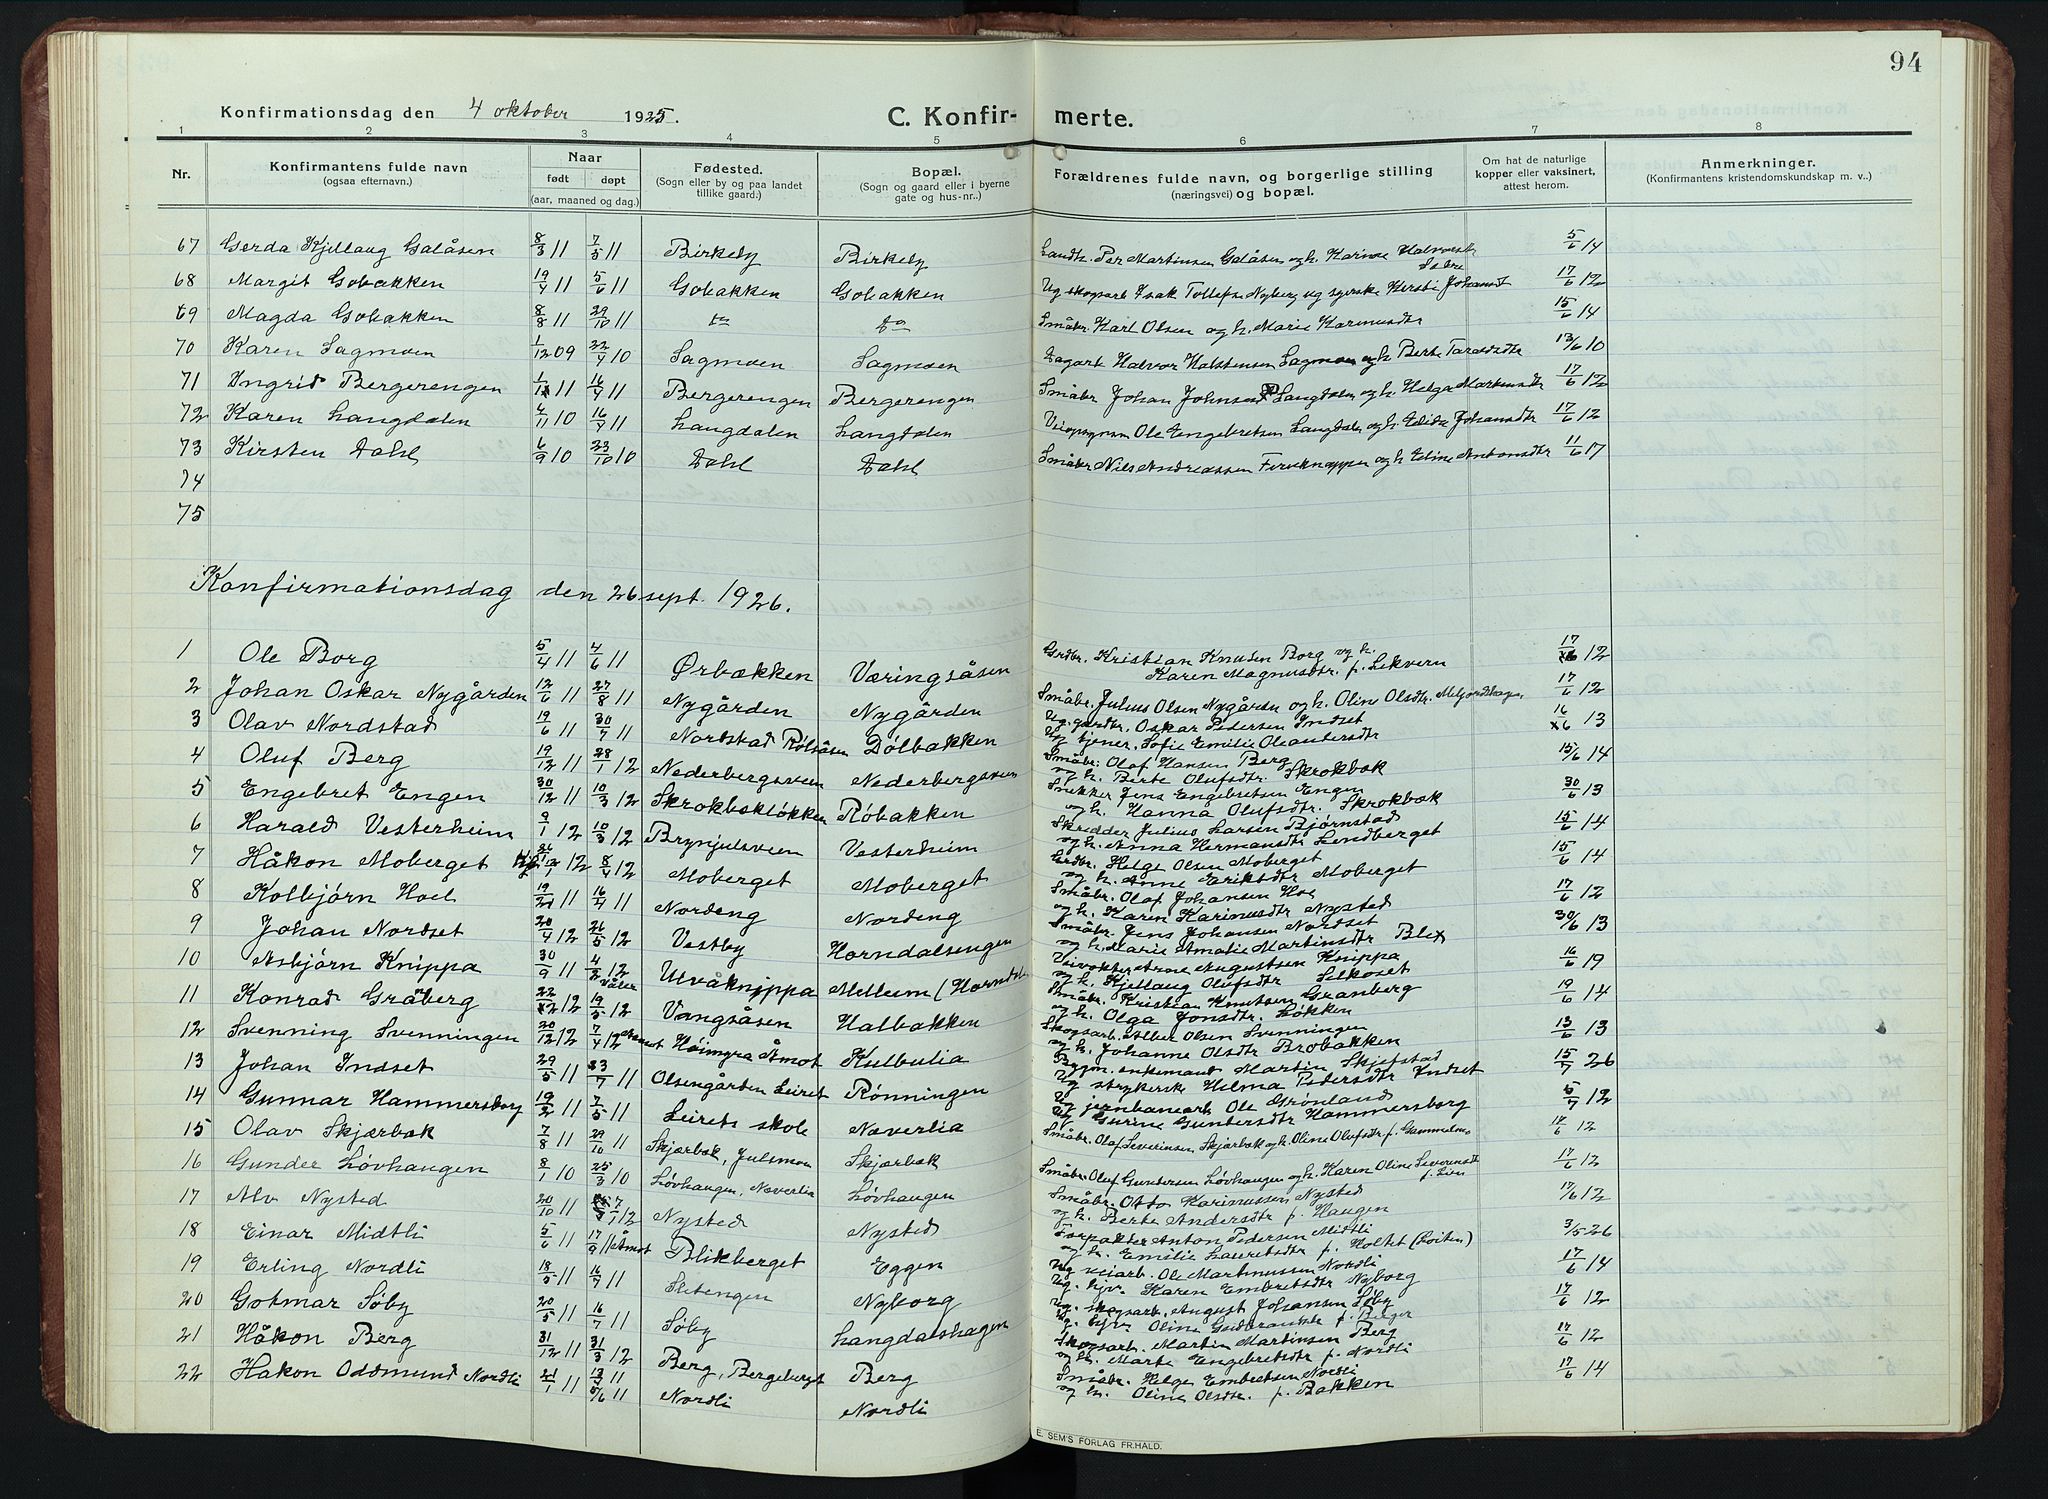 94
Konfirmationsdag den 4 oktober 1925. C. Konfir- merte.
1 2 3 4 5 6 7 8
Nr. Konfirmantens fulde navn (ogsaa efternavn.) Naar født døpt (aar, maaned og dag.) Fødested. (Sogn eller by og paa landet tillike gaard.) Bopæl. (Sogn og gaard eller i byerne gate og hus-nr..) Forældrenes fulde navn, og borgerlige stilling (næringsvei) og bopæl. Om hat de naturlige kopper eller vaksinert, attest herom. Anmerkninger. (Konfirmantens kristendomskundskap m. v..)
67 Gerda Kjellaug Galåsen 8/3 11 7/5 11 Birkeby Birkeby Landh. Per Martinsen Galåsen og h. Karine Halvorsdtr 5/6 14
68 Margit Gobakken 19/4 11 5/6 11 Gobakken Gobakken Ug skogsarb Isak Tollefsen Nyberg ug syerske Kersti Johansdt 17/6 12
69 Magda Gobakken 8/8 11 29/10 11 do do Småbr. Karl Olsen og h. Marie Karinusdtr 15/6 14
70 Karen Sagmoen 1/12 09 22/4 10 Sagmoen Sagmoen Dagarb Halvor Halstensen Sagmoen og h Berte Taraldsdtr 13/6 10
71 Ingrid Bergerengen 1/1 11 16/4 11 Bergerengen Bergerengen Småbr Johan Johnsen Langdalen og h. Helga Martinsdtr 17/6 12
72 Karen Langdalen 4/11 10 16/7 11 Langdalen Langdalen Veiopsynsm Ole Engebretsen Langdalen og h. Edite Johansdtr 17/6 12
73 Kirsten Dahl 6/9 10 23/10 10 Dahl Dahl Småbr Nils Andreassen Furuknappen og h Eline Antonsdtr 11/6 17
74
75
Konfirmationsdag den 26 sept. 1926.
1 Ole Borg 5/4 11 4/6 11 Ørbækken Væringsåsen Grdbr. Kristian Knutsen Borg og h. Karen Magnusdtr. f. Lekvern 17/6 12
2 Johan Oskar Nygården 12/6 11 27/8 11 Nygården Nygården Småbr. Julius Olsen Nygården og h. Oline Olsdtr. 17/6 12
3 Olav Nordstad 19/6 11 30/7 11 Nordstad Rølsåsen Dølbakken Ug. gardbr. Oskar Pedersen Indset Ug tjener, Sofie Emilie Oleandersdtr 16/6 13
4 Oluf Berg 19/12 11 28/1 12 Nederbergsveen Nederbergsveen Småbr. Olaf Hansen Berg og h. Berte Olufsdtr. Skrokbæk 15/6 14
5 Engebret Engen 30/12 11 10/3 12 Skrokbækløkken Røbakken Snekker Jens Engebretsen Engen og h. Hanna Olufsdtr. Skrokbæk 30/6 13
6 Harald Vesterheim 9/1 12 10/3 12 Brynjulsveen Vesterheim Skredder Julius Larsen Bjørnstad og h. Anna Hermansdtr Lendberget 15/6 14
7 Håkon Moberget 26/1 12 8/4 12 Moberget Moberget Grdbr. Helge Olsen Moberget og h. Anne Eriksdtr Moberget 15/6 14
8 Kolbjørn Hoel 19/ 11 16/7 11 Nordeng Nordeng Småbr. Olaf Johansen Hoel og h. Karen Karinusdtr Nysted 17/6 12
9 Johan Nordset 20/4 12 26/5 12 Vestby Horndalsengen Småbr. Jens Johansen Nordset og h. Marie Amalie Martinsdtr Blix 30/6 13
10 Asbjørn Knippa 30/9 11 4/2 12 Våler Ulvåknippa Melleim (Horndalen Veivokter Arne Augustsen Knippa og h. Kjellaug Olufsdtr Selkoset 16/6 19
11 Konrad Gråberg 22/2 12 19/5 12 Vangsåsen Halbakken Småbr. Kristian Knutsen Granberg og h. Olga Jonsdtr. Løkken 19/6 14
12 Svenning Svenningen 20/12 12 7/4 12 Åmot Høimyra Åmot Kulbulia Skogsarb. Alber Olsen Svenningen og h. Johanne Olsdtr Brobakken 13/6 13
13 Johan Indset 29/5 11 23/7 11 Olsengården Leiret Rønningen Bygm. enkemand Martin Skjefstad Ug strykerske Helma Pedersdtr Indset 15/7 26
14 Gunnar Hammersborg 19/2 11 7/5 11 Leirets skole Næverlia Ug jernbanearb Ole Grønland Ug Gurine Gundersdtr Hammersborg 5/7 12
15 Olav Skjærbæk 7/8 11 29/10 11 Skjærbæk, Julsmoen Skjærbæk Småbr. Olaf Severinsen Skjærbæk og h. Oline Olufsdtr f. 12/6 12
16 Gunder Løvhaugen 8/1 10 25/3 10 Løvhaugen, Næverlia Løvhaugen Småbr. Oluf Gundersen Løvhaugen og h. Karen Oline Severinsdtr f. Lien 17/6 12
17 Alv Nysted 20/10 11 7/1 12 Nysted Nysted Småbr. Otto Karinussen Nysted og h. Berte Andersdtr f. Haugen 17/6 12
18 Einar Midtli 5/6 11 17/9 11 Åmot Blikberget Eggen Forpakter Anton Pedersen Midtli og h. Emilie Lauritsdtr f. Holtet (Løiten) 3/5 26
19 Erling Nordli 18/5 11 16/7 11 Sletengen Nyborg Ug veiarb. Ole Martinussen Nordli Ug. hjv. Karen Embretsdtr Nyborg 17/6 14
20 Gotmar Søby 20/5 11 16/7 11 Søby Langdalshagen Ug. skogsarb. August Johansen Søby Ug. hjv. Oline Gudbrandsdtr f. Berger 17/6 12
21 Håkon Berg 31/12 11 31/3 12 Berg, Bergeberget Berg Skogsarb. Martin Martinsen Berg og h. Marte Engebretsdtr f. Nordli 17/6 12
22 Håkon Oddmund Nordli 21/1 11 11 Nordli Nordli Småbr. Helge Embretsen Nordli og h. Oline Olsdtr. f. Bakken 17/6 14
E. SEM'S FORLAG FR.HALD.